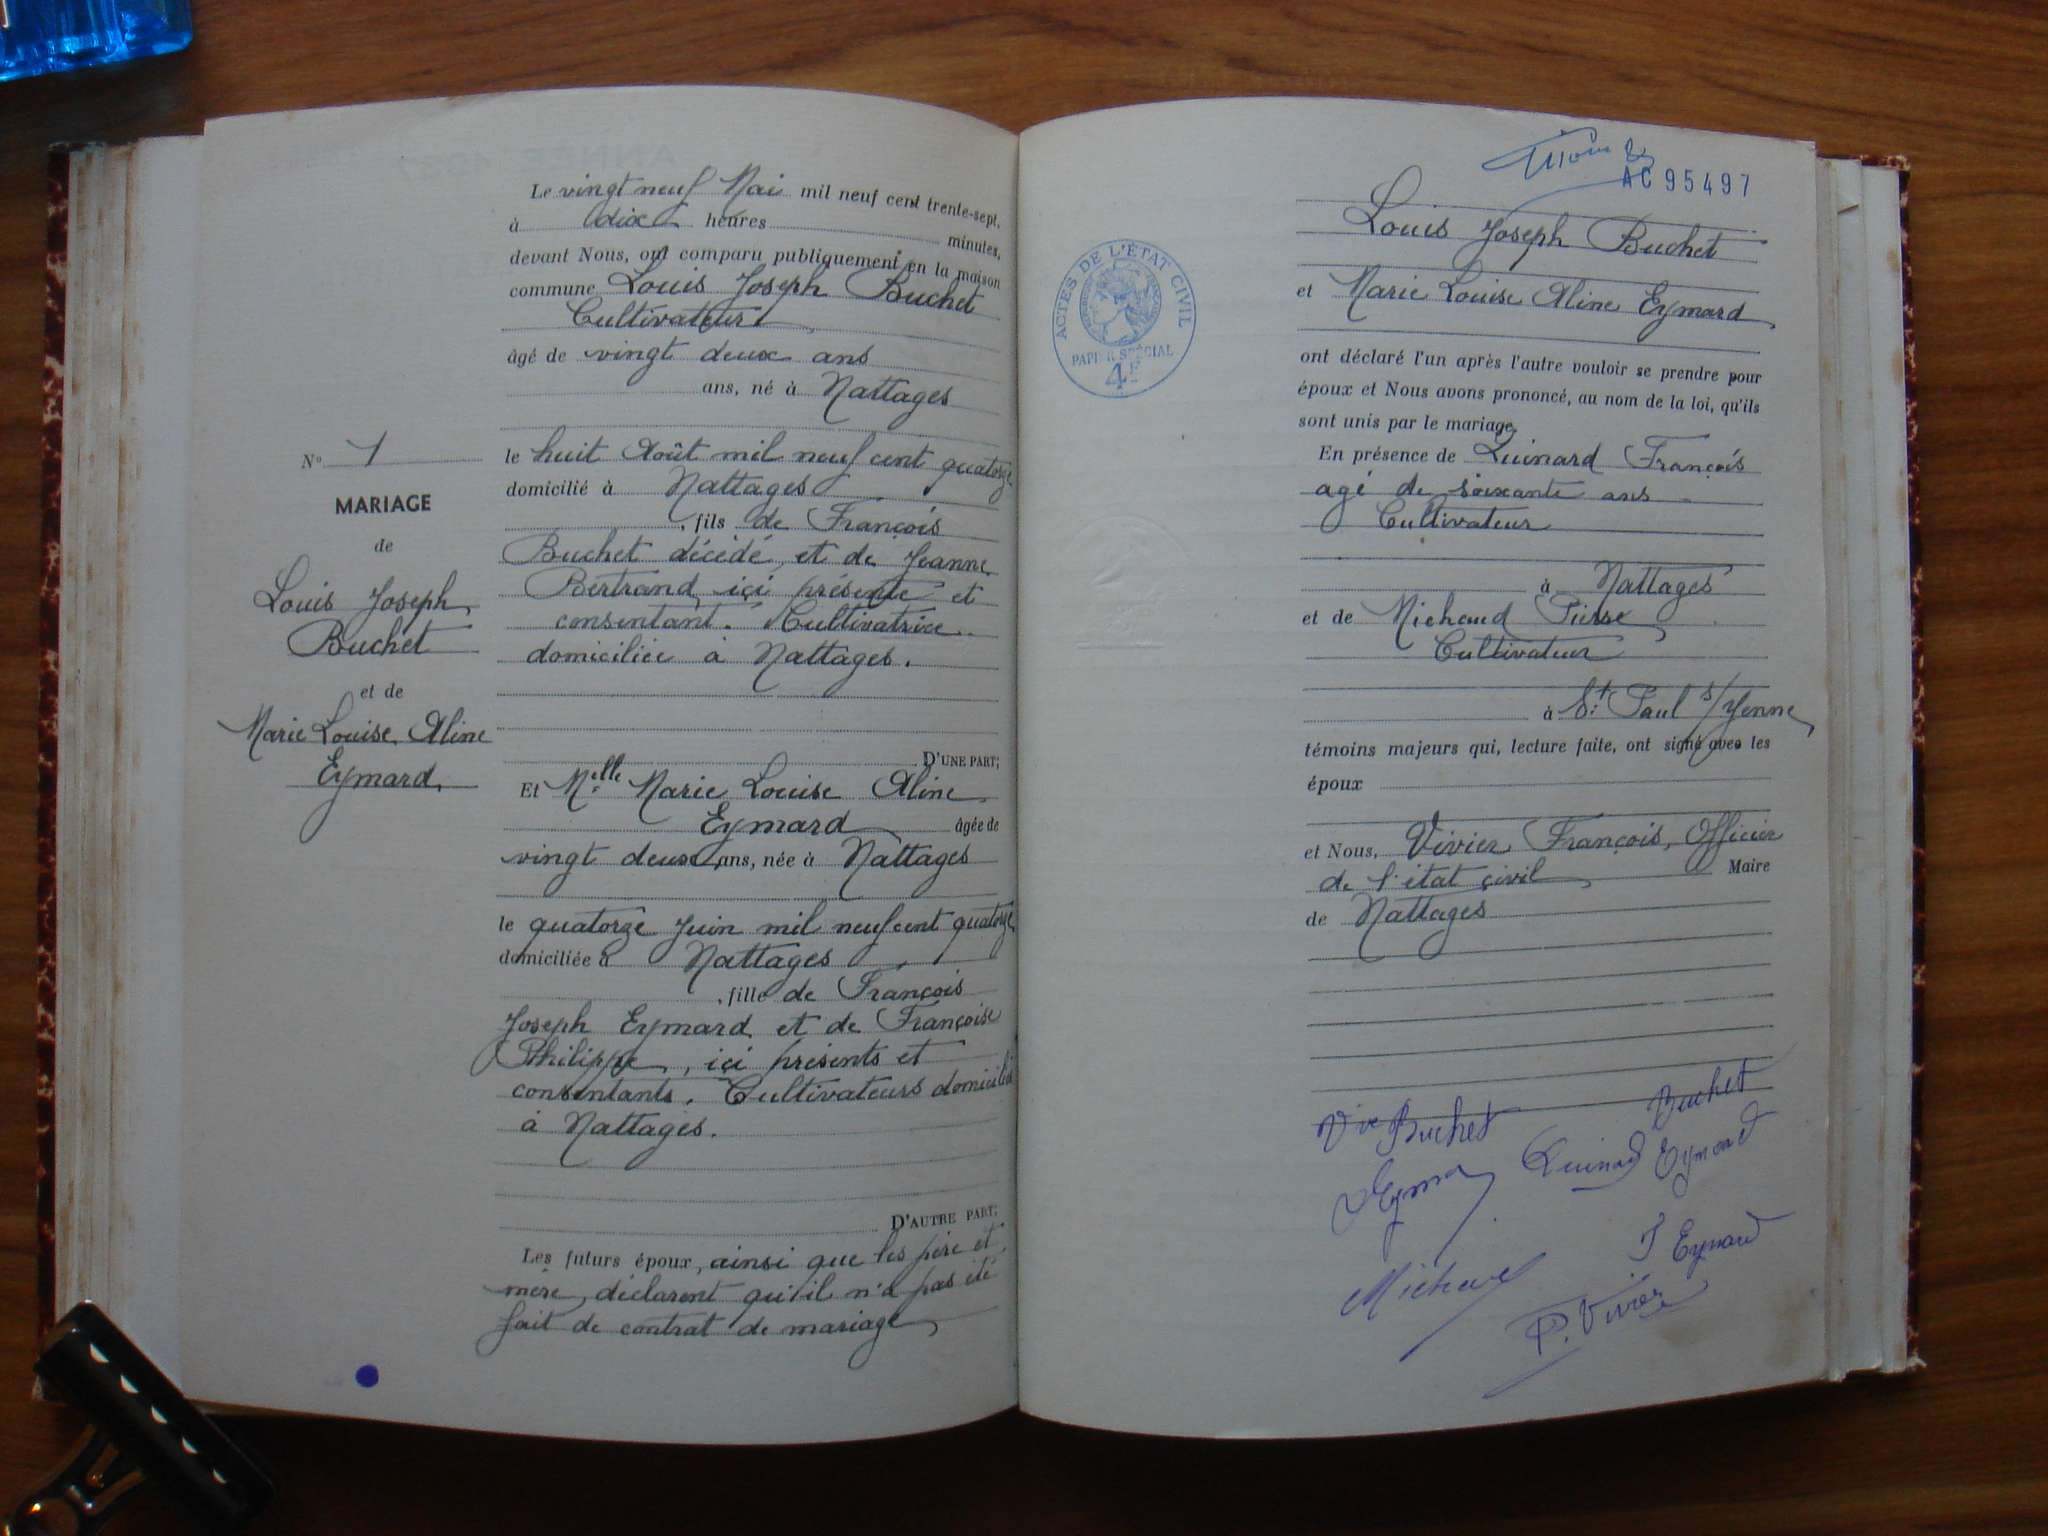 Le vingt neuf Mai mil neuf cent trente-sept,
à dix heures minutes,
devant Nous, ont comparu publiquement en la maison
commune Louis Joseph Buchet
Cultivateur
âgé de vingt deux ans
ans, né à Nattages
le huit Août mil neuf cent quatorze
domicilié à Nattages
, fils de François
Buchet décédé, et de Jeanne
Bertrand, içi présente et
consentant. Cultivatrice
domiciliée à Nattages.
D'UNE PART;
Et Melle Marie Louise Aline
Eymard âgée de
vingt deux ans, née à Nattages
le quatorze Juin mil neuf cent quatorze
domiciliée à Nattages
, fille de François
Joseph Eymard et de Françoise
Philippe, içi présents et
consentants. Cultivateurs domiciliés
à Nattages.
D'AUTRE PART;
Les futurs époux, ainsi que les père et
mère, déclarent qu'il n'a pas été
fait de contrat de mariage
No 1
MARIAGE
de
Louis Joseph
Buchet
et de
Marie Louise Aline
Eymard
AC 95497
ACTES DE L'ÉTAT CIVIL
PAPIER SPÉCIAL
4F
Louis Joseph Buchet
et Marie Louise Aline Eymard
ont déclaré l'un après l'autre vouloir se prendre pour
époux et Nous avons prononcé, au nom de la loi, qu'ils
sont unis par le mariage
En présence de Quinard François
agé de soixante ans
Cultivateur
à Nattages
et de Michaud Pierre
Cultivateur
à St Paul s/Yenne
témoins majeurs qui, lecture faite, ont signé avec les
époux
et Nous, Vivier François, Officier
de l'état çivil Maire
de Nattages
Vve Buchet
Buchet
Quinard
Eymard
J Eymard
P. Vivier